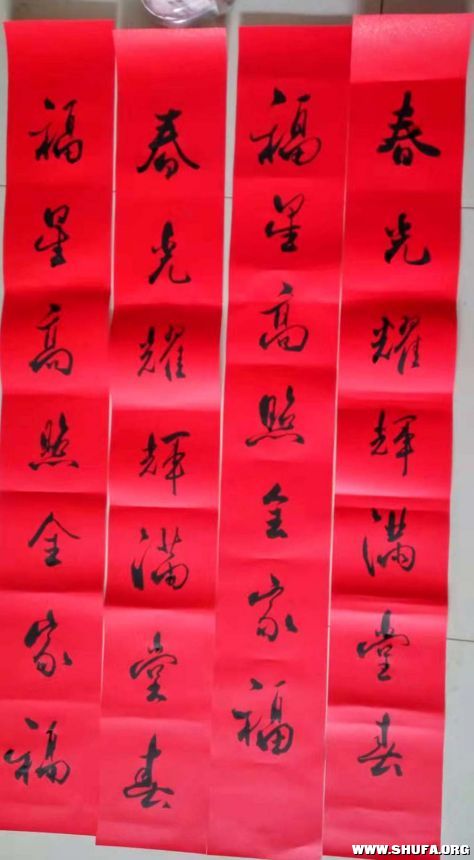 春光耀辉满堂春
福星高照全家福
春光耀辉满堂春
福星高照全家福
WWW.SHUFA.ORG